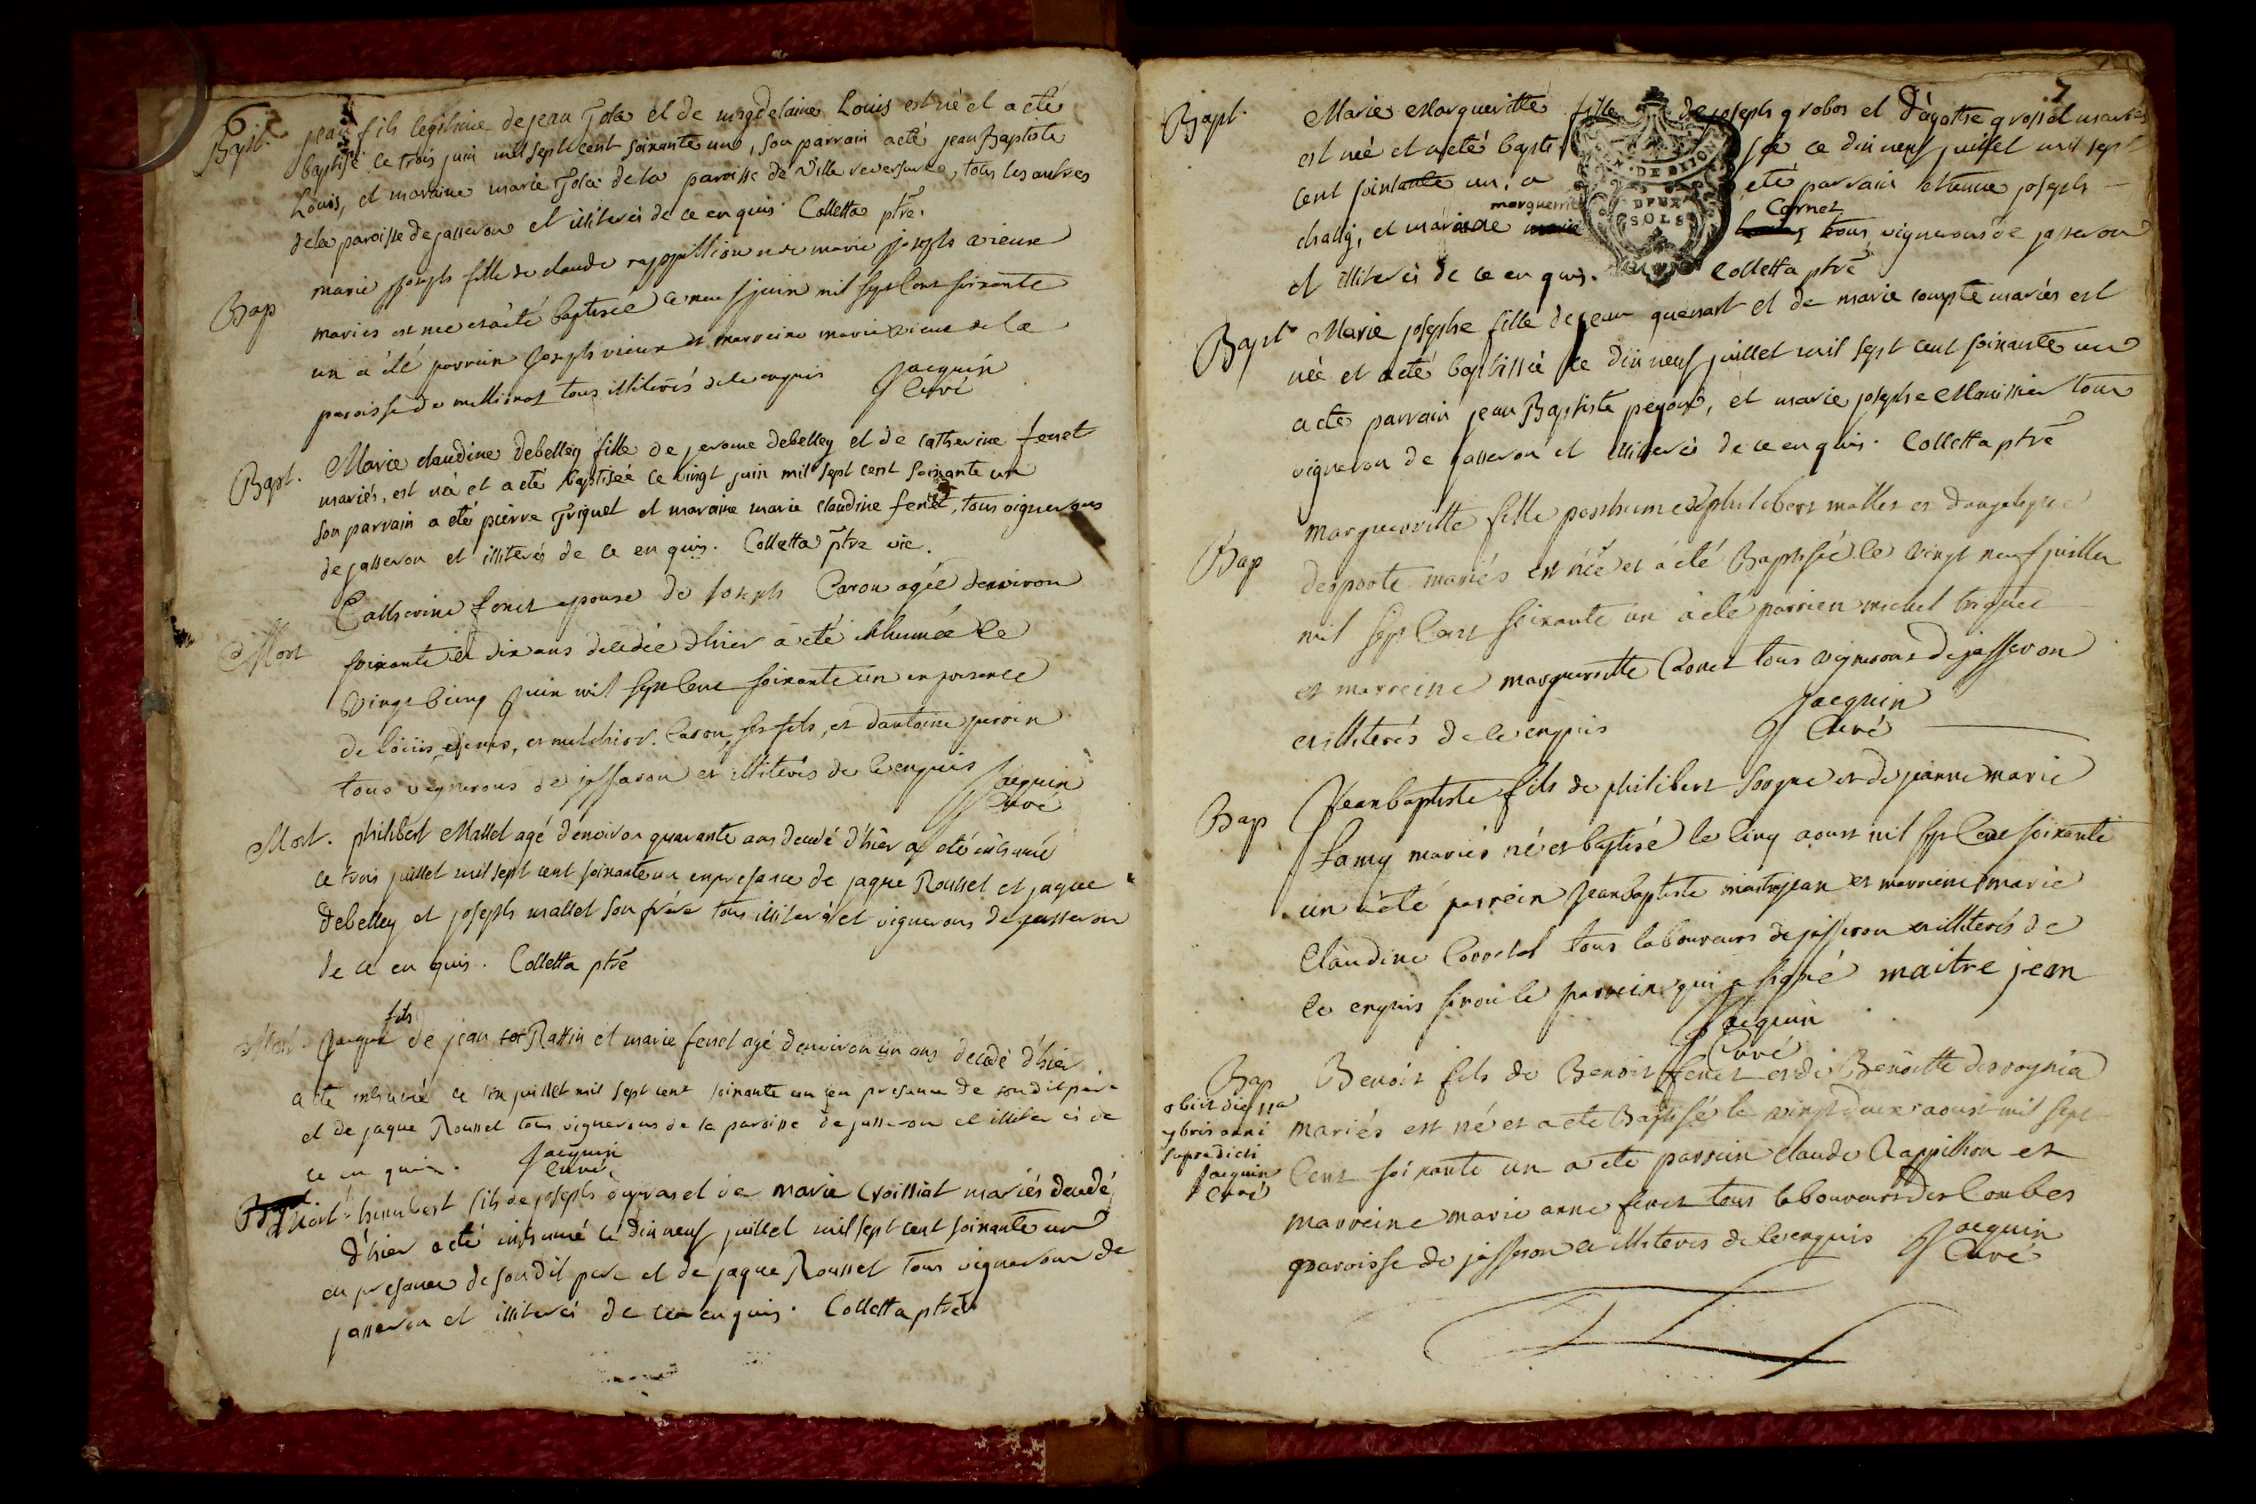 6
Bapt. jean fils legitime de jean Jola et de magdelaine Louis est né et a eté
baptisé ce trois juin mil sept cent soixante un, son parrain a eté jean Baptiste
Louis, et maraine marie Jola de la paroisse de Villereversure, tous les autres
de la paroisse de jasseron et illiterés de ce enquis. Colletta ptre.
Bap marie joseph fille de claude rappillion et de marie joseph vieux
mariés est née et a été baptisée le neuf juin mil sept cent soixante
un a été parrain Joseph vieux et marreine marie vieux de la
paroisse de tous illiterés de ce enquis Jacquin
Curé
Bapt. Marie claudine Debelley fille de jerome debelley et de catherine fenet
mariés, est née et a eté baptisée ce vingt juin mil sept cent soixante un
son parrain a eté pierre Triquet et maraine marie claudine fenet, tous vignerons
de jasseron et illiterés de ce enquis. Colletta ptre vic.
Mort Catherine fenet epouse de Joseph Caron agée denviron
soixante et dix ans decedée dhier a eté inhumée le
vingt cinq Juin mil sept cent soixante un en presence
de loüis, denis, et melchior Caron, ses fils, et dantoine perrin
tous vignerons de jasseron et illiterés de ce enquis Jacquin
Curé
Mort. philibert Mallet agé denviron quarante ans decedé d'hier a eté inhumé
ce trois juillet mil sept cent soixante un en presance de jaque Roussel et jaque
Debelley et joseph mallet son frere tous illiterés et vignerons de jasseron
de ce enquis. Colletta ptre
fils
Mort Jaque de jean Rassin et marie fenet agé denviron un ans decedé d'hier
a ete inhumé ce six juillet mil sept cent soixante un en presence de son dit pere
et de jaque Roussel tous vignerons de la paroisse de jasseron et illiterés de
ce enquis. Jacquin
Curé
Mort humbert fils de joseph et de marie Croissiat mariés decedé
d'hier a eté inhumé le dix neuf juillet mil sept cent soixante un
en presance de son dit pere et de jaque Roussel tous vignerons de
jasseron et illiterés de ce enquis. Colletta ptre
7
Bapt. Marie Margueritte fille de joseph grobos et d'agathe grosset mariés
est née et a eté baptisée ce dix neuf juillet mil sept
cent soixante un, a eté parrain etienne joseph
margueritte Cornet
chassy, et maraine tous vignerons de jasseron
et illiterés de ce enquis. Colletta ptre
EN. DE DIJON
DEUX
SOLS
Bapt Marie josephe fille de jean quenart et de marie compte mariés est
née et a eté baptissée ce dix neuf juillet mil sept cent soixante un
a eté parrain jean Baptiste, et marie josephe Maissier tous
vigneron de jasseron et illiterés de ce enquis. Colletta ptre
Bap marguerritte fille posthume de philibert mallet et dangelique
desporte mariés est née et a été Baptisée le vingt neuf juillet
mil sept cent soixante un a eté parrien michel triquet
et marreine marguerritte Caonet tous vignerons de jasseron
et illiterés de ce enquis Jacquin
Curé
Bap Jean baptiste fils de philibert Sorgue et de jeanne marie
Lamy mariés né et baptisé le cinq aoust mil sept cent soixante
un a eté parrein Jean baptiste maitrejean et marreine marie
Claudine Corretel tous laboureurs de jasseron et illiterés de
ce enquis sinon le parrein qui a signé maitre jean
Jacquin
Curé
Bap Benoit fils de Benoit fenet et de Benoitte desvognia
obiit die 11a
7bris anni
supradicti
Jacquin
Curé
mariés est né et a eté Baptisé le vingt deux aoust mil sept
cent soixante un a eté parrein claude Rappillion et
marreine marie anne fenet tous laboureurs des Combes
paroisse de jasseron et illiterés de ce enquis Jacquin
Curé